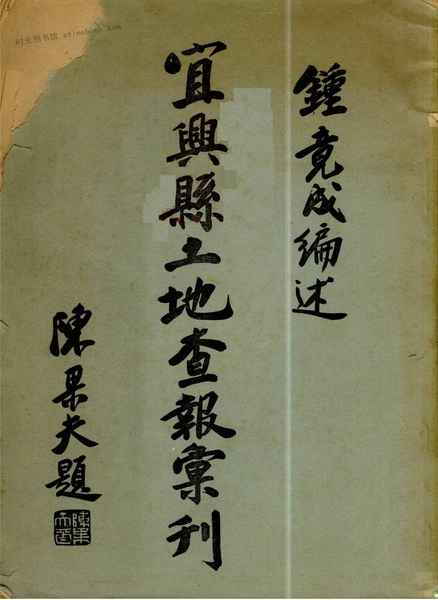 鍾竟成編述
宜興縣土地查報彙刊
陳果夫題